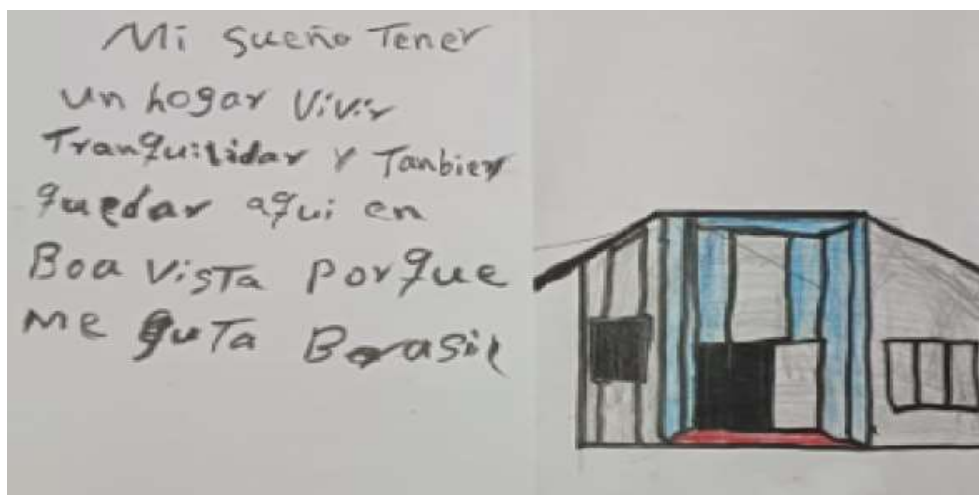 Mi sueño Tener
un hogar Vivir
Tranquilidar y Tanbien
quedar aqui en
Boa VisTa porque
me guTa Brasil